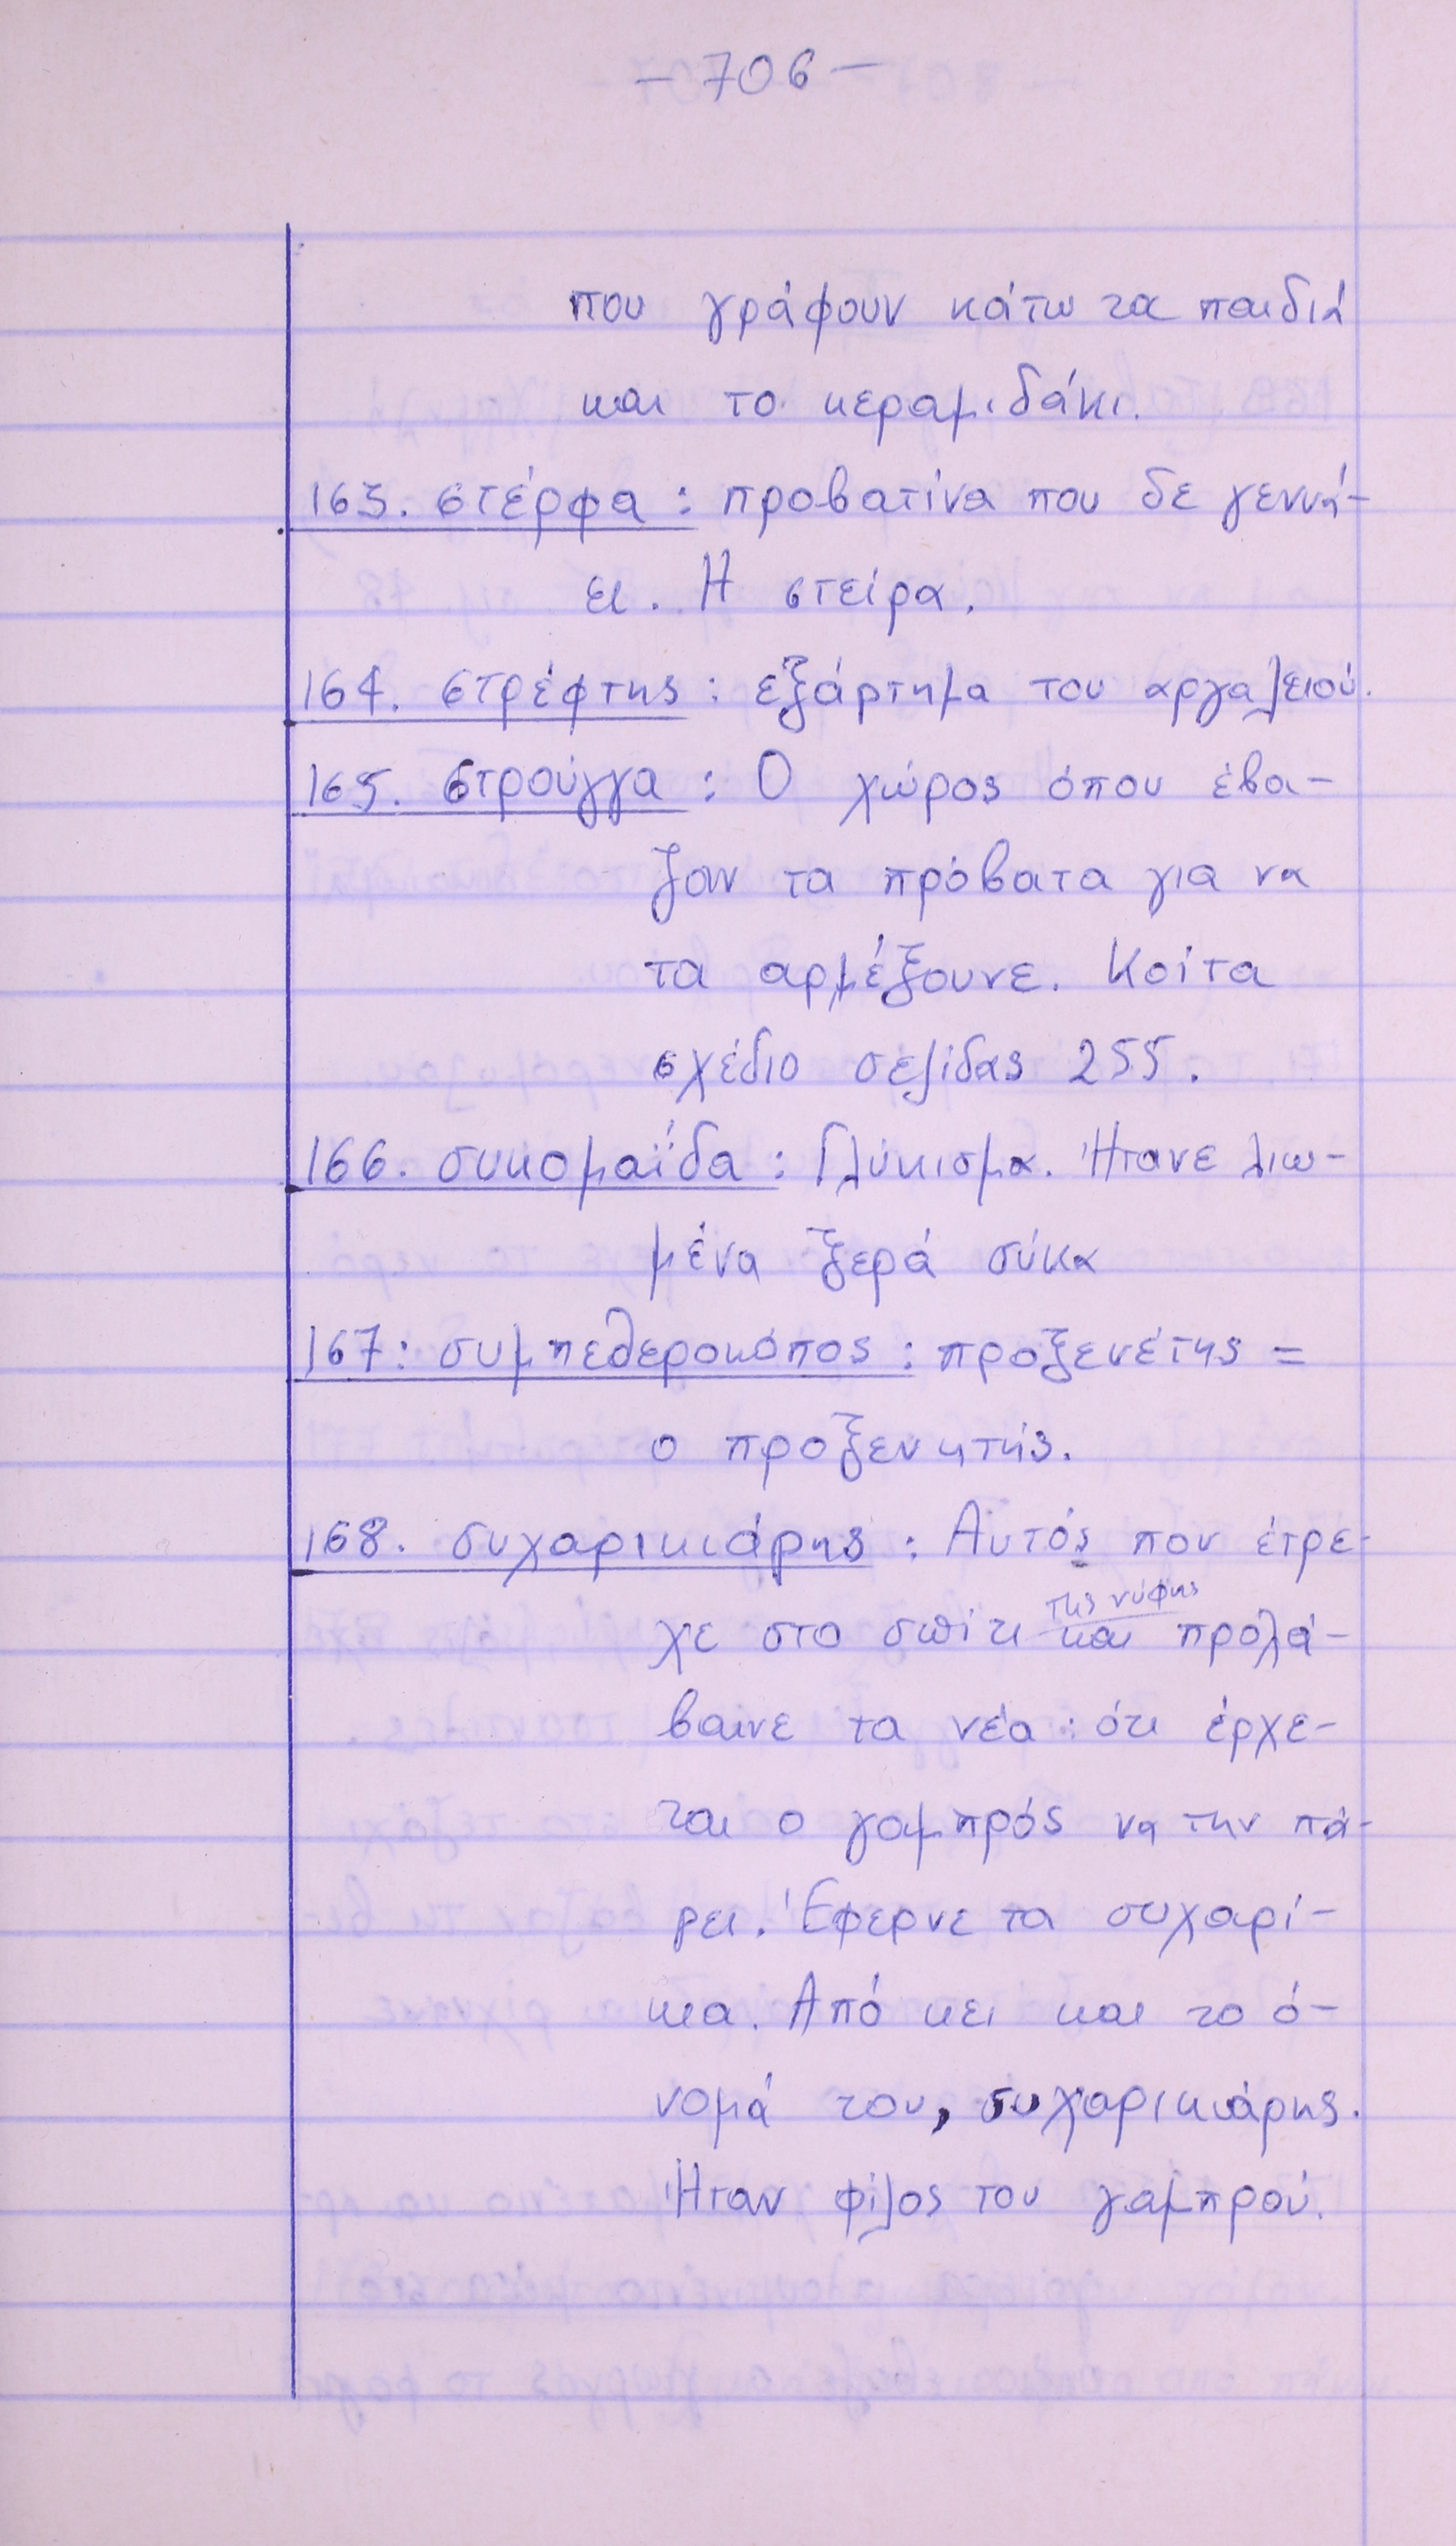 - 706 -
που γράφουν κάτω τα παιδιά
και το κεραμιδάκι.
163. στέρφα : προβατίνα που δε γεννά-
ει. Η στείρα.
164. στρέφτης : εξάρτημα του αργαλειού.
165. στρούγγα : Ο χώρος όπου έβα-
ζαν τα πρόβατα για να
τα αρμέξουνε. Κοίτα
σχέδιο σελίδας 255.
166. συκομαΐδα : Γλύκισμα. Ήτανε λιω-
μένα ξερά σύκα
167: συμπεθεροκόπος : προξενέτης =
ο προξενητής.
168. συχαρικιάρης : Αυτός που έτρε-
της νύφης
χε στο σπίτι και προλά-
βαινε τα νέα : ότι έρχε-
ται ο γαμπρός να την πά-
ρει. Έφερνε τα συχαρί-
κια. Από κει και το ό-
νομά του, συχαρικιάρης.
Ήταν φίλος του γαμπρού.